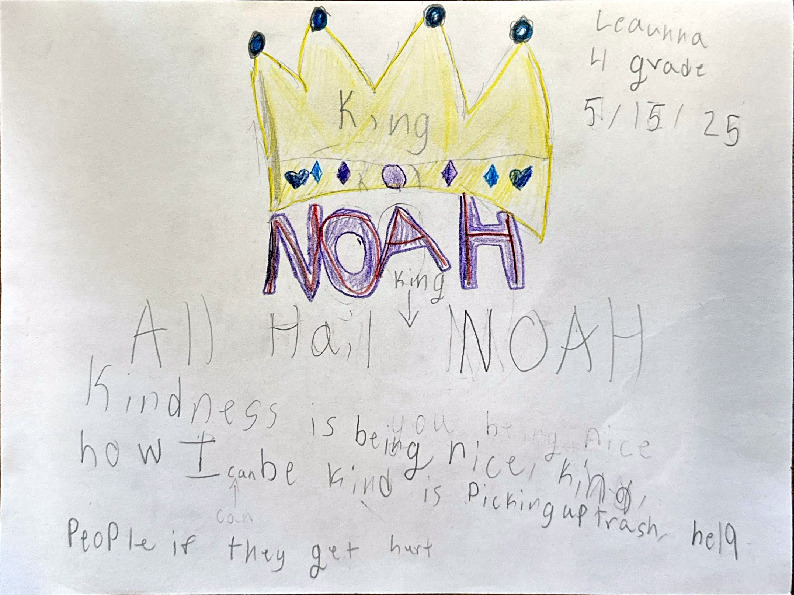 Leaunna
4 grade
5/15/25
King
NOAH
king
All Hail NOAH
Kindness is being nice, kind,
you being nice
how I can be kind is Picking up trash, help
can
PeoPle if they get hurt